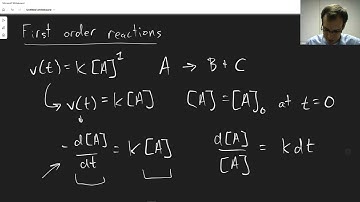 First order reactions
v(t) = k[A]¹ A → B + C
v(t) = k[A] [A] = [A]₀ at t = 0
- d[A]/dt = k[A] d[A]/[A] = k dt